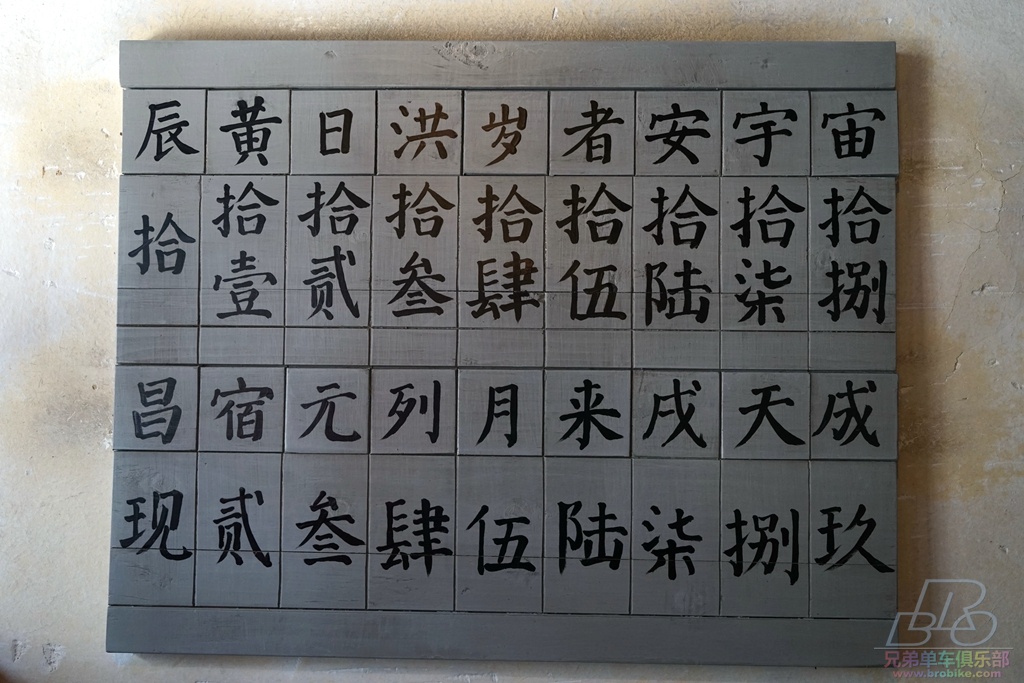 辰 黄 日 洪 岁 者 安 宇 宙
拾 拾壹 拾贰 拾叁 拾肆 拾伍 拾陆 拾柒 拾捌
昌 宿 元 列 月 来 戌 天 成
现 贰 叁 肆 伍 陆 柒 捌 玖
BRO
兄弟单车俱乐部
www.brobike.com